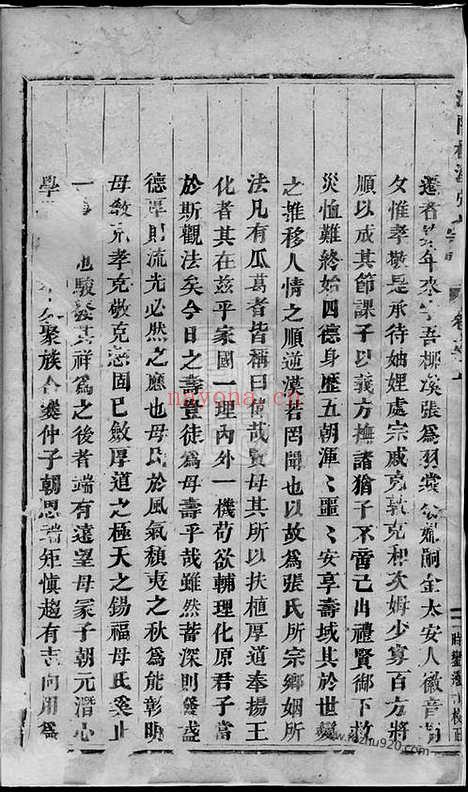 遷者
年來
吾柳溪張爲羽
嗣金太安人徽音
夕惟孝敬是承待妯娌處宗戚克敦克和次姆少寡百方將
順以成其節課子以義方撫諸猶子不啻己出禮賢御下救
災恤難終始四德身歷五朝渾〻噩〻安享壽域其於世變
之推移人情之順逆漠若罔聞也以故爲張氏所宗鄉姻所
法凡有瓜葛者皆稱曰偉哉賢母其所以扶植厚道奉揚王
化者其在茲乎家國一理內外一機苟欲輔理化原君子當
於斯觀法矣今日之壽豈徒爲母壽乎哉雖然蓄深則發盛
德厚則流光必然之應也母氏於風氣頹夷之秋爲能彰明
母敎允孝克敬克慈固已斂厚道之極天之錫福母氏奚止
一
也駿發其祥爲之後者端有遠望母冢子朝元潛心
學
聚族合爨仲子朝恩端矩愼趨有志向用爲
nayona.cn
www.jiazhu920.com